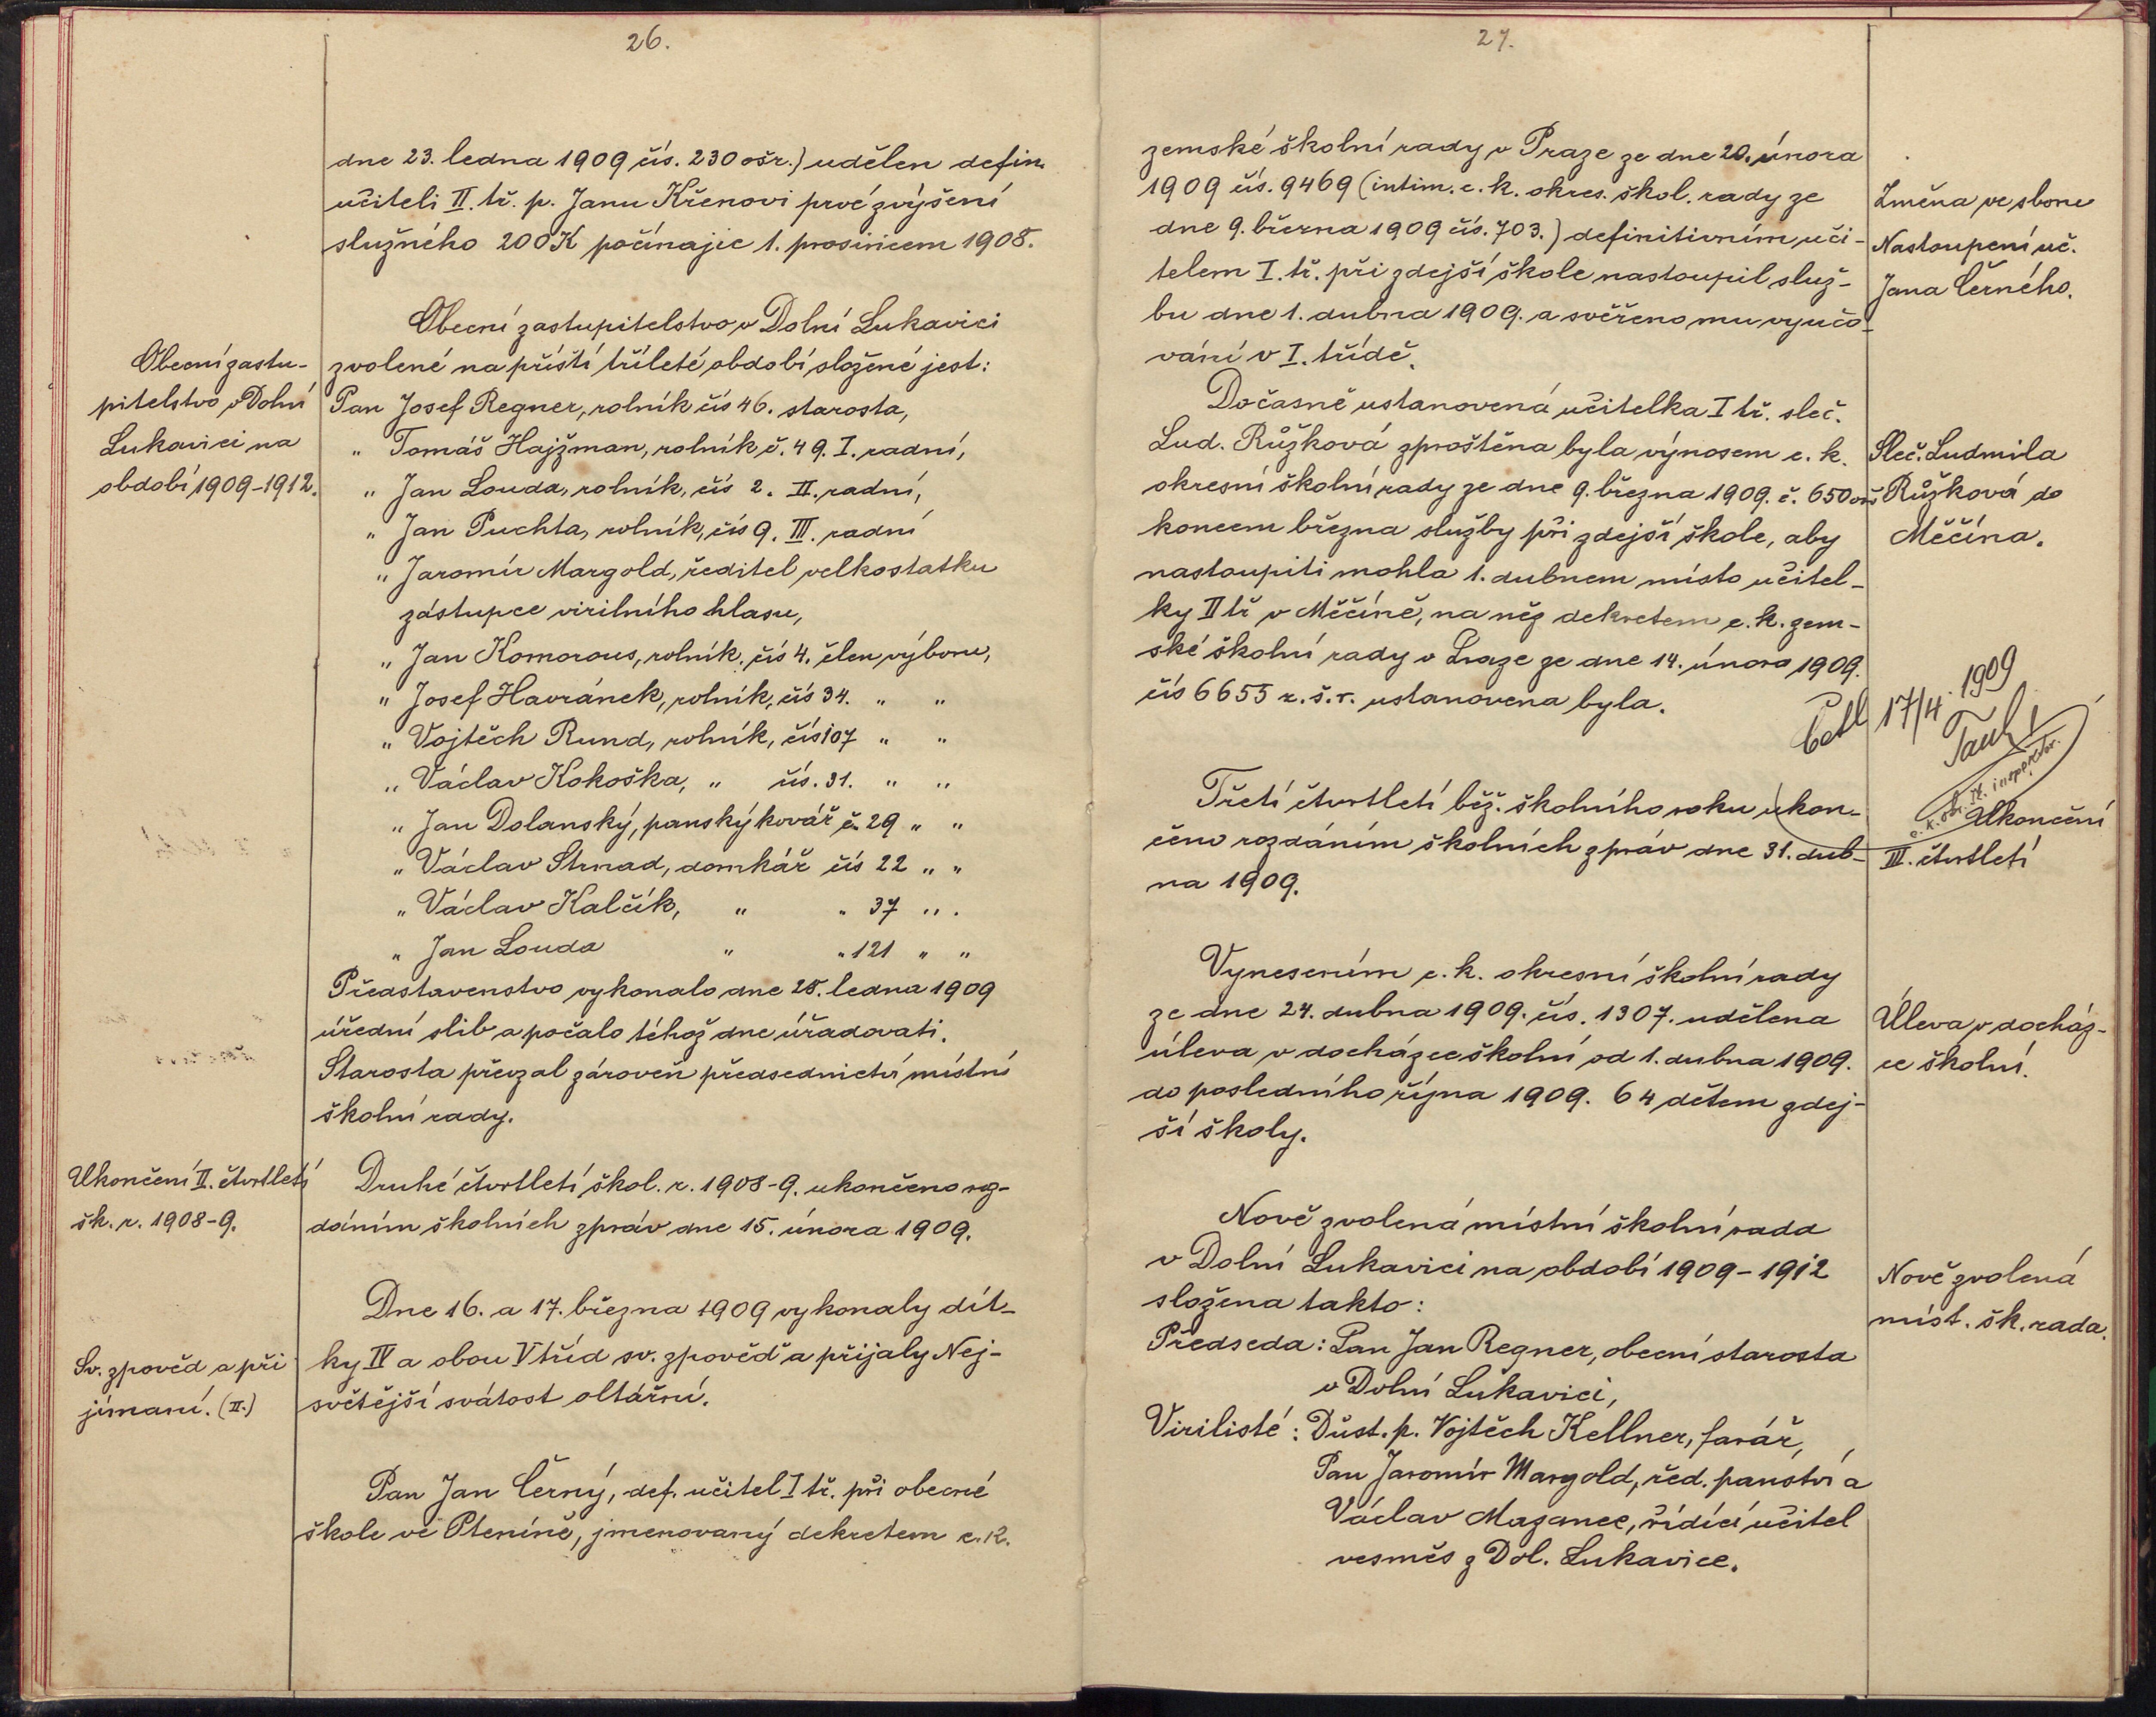 26.
dne 23. ledna 1909 čís. 230 ošr.) udělen defin.
učiteli II. tř. p. Janu Křenovi prvé zvýšení
služného 200 K počínajíc 1. prosincem 1908.
Obecní zastu-
pitelstvo v Dolní
Lukavici na
období 1909-1912.
Obecní zastupitelstvo v Dolní Lukavici
zvolené na příští tříleté období složené jest:
Pan Josef Regner, rolník čís 46. starosta,
" Tomáš Hajžman, rolník č. 49. I. radní,
" Jan Louda, rolník, čís 2. II. radní,
" Jan Puchta, rolník, čís 9. III. radní
" Jaromír Margold, ředitel velkostatku
zástupce virilního hlasu,
" Jan Komorous, rolník, čís 4. člen výboru,
" Josef Havránek, rolník, čís 34. " "
" Vojtěch Rund, rolník, čís 107 " "
" Václav Kokoška, " čís. 31. " "
" Jan Dolanský, panský kovář č. 29 " "
" Václav Strnad, domkář čís 22 " "
" Václav Kalčík, " " 37 " .
" Jan Louda " " 121 " "
Představenstvo vykonalo dne 28. ledna 1909
úřední slib a počalo téhož dne úřadovati.
Starosta převzal zároveň předsednictví místní
školní rady.
Ukončení II. čtvrtletí
šk. r. 1908-9.
Druhé čtvrtletí škol. r. 1908-9. ukončeno roz-
dáním školních zpráv dne 15. února 1909.
Sv. zpověd a při
jímaní. (II.)
Dne 16. a 17. března 1909 vykonaly dít-
ky IV a obou V tříd sv. zpověď a přijaly Nej-
světější svátost oltářní.
Pan Jan Černý, def. učitel I tř. při obecné
škole ve Pteníně, jmenovaný dekretem c. k.
27.
zemské školní rady v Praze ze dne 20. února
1909 čís. 9469 (intim. c. k. okres. škol. rady ze
dne 9. března 1909 čís. 703.) definitivním uči-
telem I. tř. při zdejší škole nastoupil služ-
bu dne 1. dubna 1909. a svěřeno mu vyučo-
vání v I. třídě.
Změna ve sboru
Nastoupení uč.
Jana Černého.
Dočasně ustanovená učitelka I tř. sleč.
Lud. Růžková zproštěna byla výnosem c. k.
okresní školní rady ze dne 9. března 1909. č. 650 oš
koncem března služby při zdejší škole, aby
nastoupiti mohla 1. dubnem místo učitel-
ky II tř v Měčíně, na něž dekretem c. k. zem-
ské školní rady v Praze ze dne 14. února 1909.
čís 6655 z. š. r. ustanovena byla.
Sleč. Ludmila
Růžková do
Měčína.
Četl 17/4. 1909
c. k. ok. šk. inspektor.
Třetí čtvrtletí běž. školního roku ukon-
čeno rozdáním školních zpráv dne 31. dub-
na 1909.
Ukončení
III. čtvrtletí
Vynesením c. k. okresní školní rady
ze dne 24. dubna 1909. čís. 1307. udělena
úleva v docházce školní od 1. dubna 1909.
do posledního října 1909. 64 dětem zdej-
ší školy.
Úleva v docház-
ce školní.
Nově zvolená místní školní rada
v Dolní Lukavici na období 1909-1912
složena takto:
Předseda: Pan Jan Regner, obecní starosta
v Dolní Lukavici,
Virilisté: Důst. p. Vojtěch Kellner, farář,
Pan Jaromír Margold, řed. panství a
Václav Mazanec, řídící učitel
vesměs z Dol. Lukavice.
Nově zvolená
míst. šk. rada.